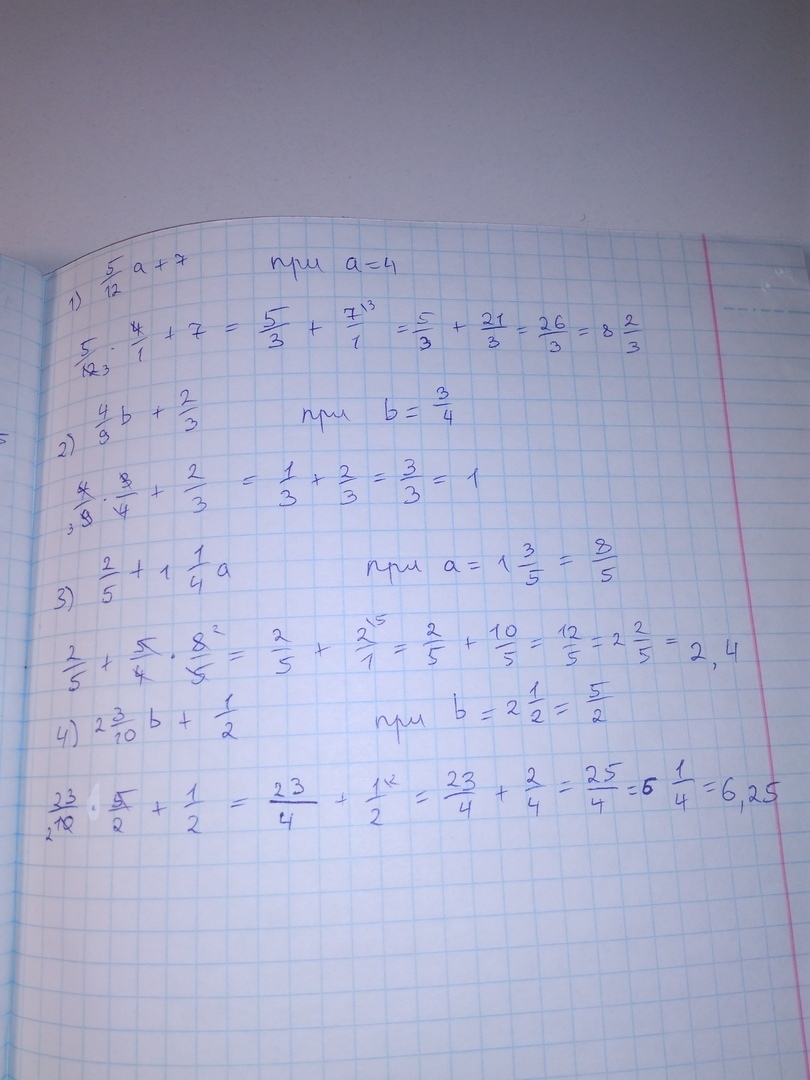 1) 5/12 a + 7 при a=4
5/12 3 · 4/1 + 7 = 5/3 + 7\3/1 = 5/3 + 21/3 = 26/3 = 8 2/3
2) 4/9 b + 2/3 при b = 3/4
4/9 3 · 3/4 + 2/3 = 1/3 + 2/3 = 3/3 = 1
3) 2/5 + 1 1/4 a при a = 1 3/5 = 8/5
2/5 + 5/4 · 8 2/5 = 2/5 + 2\5/1 = 2/5 + 10/5 = 12/5 = 2 2/5 = 2,4
4) 2 3/10 b + 1/2 при b = 2 1/2 = 5/2
23/10 2 · 5/2 + 1/2 = 23/4 + 1\2/2 = 23/4 + 2/4 = 25/4 = 6 1/4 = 6,25